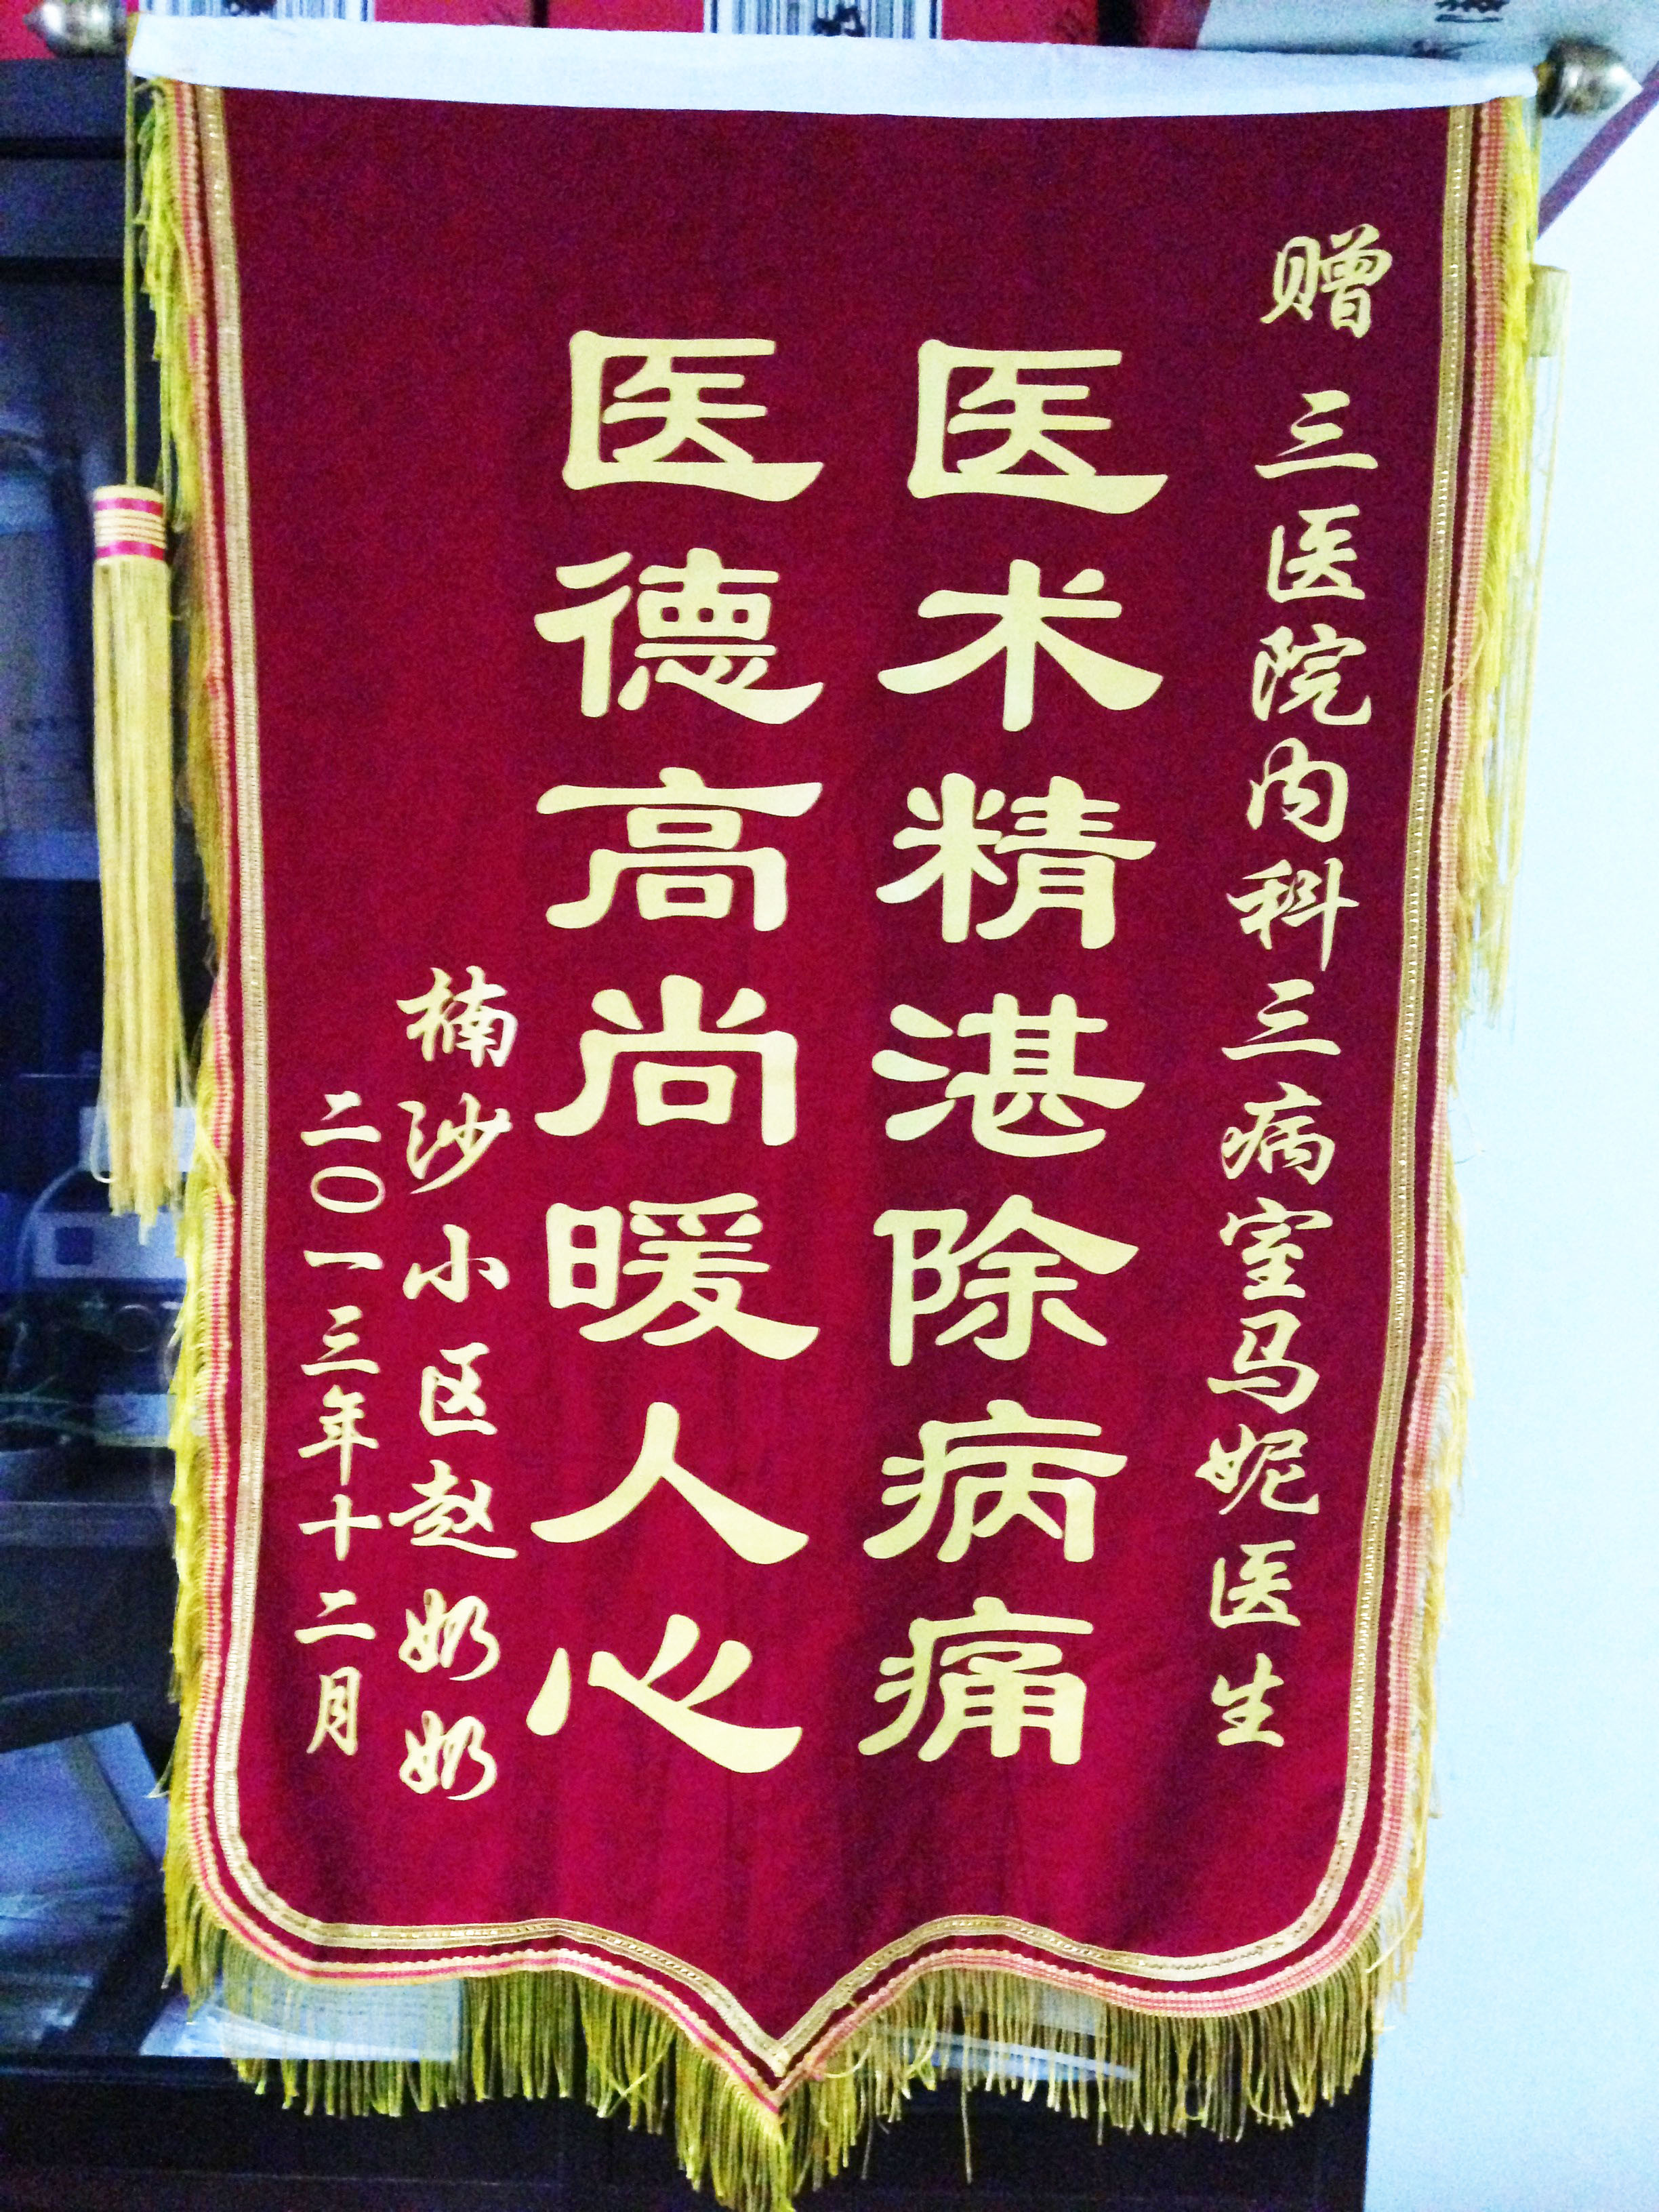 赠 三医院内科三病室马妮医生
医术精湛除病痛
医德高尚暖人心
楠沙小区赵奶奶
二〇一三年十二月